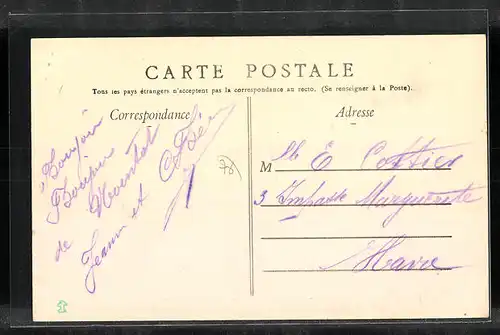 CARTE POSTALE
Tous les pays étrangers n'acceptent pas la correspondance au recto. (Se renseigner à la Poste).
Correspondance
Adresse
Bonjour
de
Jeanne et
M E Cottier
3 Impasse Marguerite
Havre